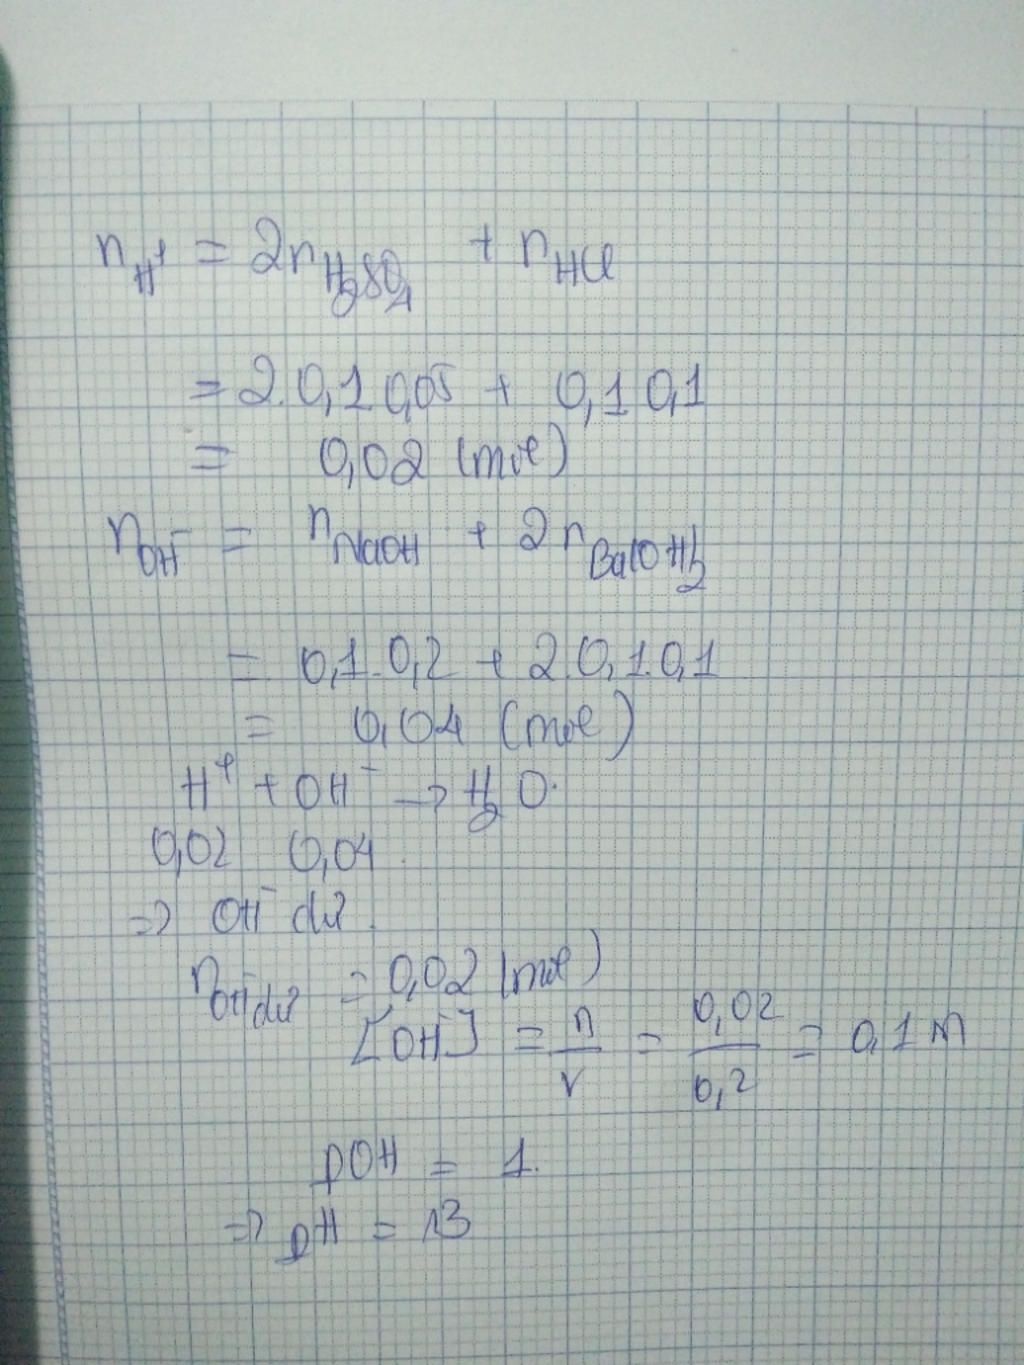 n_H⁺ = 2n_H₂SO₄ + n_HCl
= 2.0,1 0,05 + 0,1 0,1
= 0,02 (mol)
n_OH⁻ = n_NaOH + 2n_Ba(OH)₂
= 0,1.0,2 + 2.0,1.0,1
= 0,04 (mol)
H⁺ + OH⁻ → H₂O.
0,02 0,04
=> OH⁻ dư.
n_OH⁻dư = 0,02 (mol)
[OH⁻] = n/V = 0,02/0,2 = 0,1 M
pOH = 1.
=> pH = 13